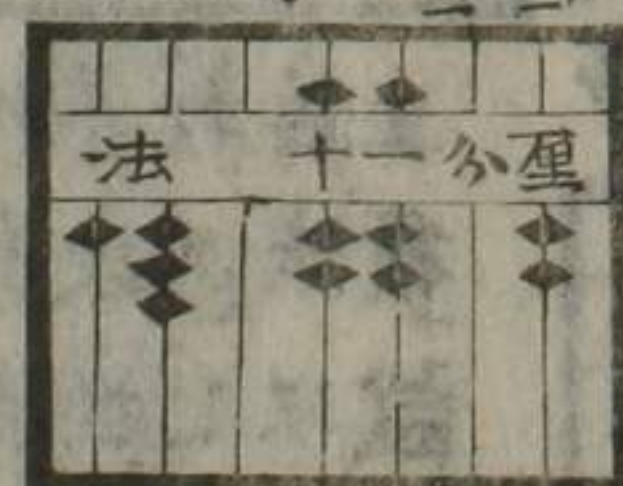 法 十一分厘